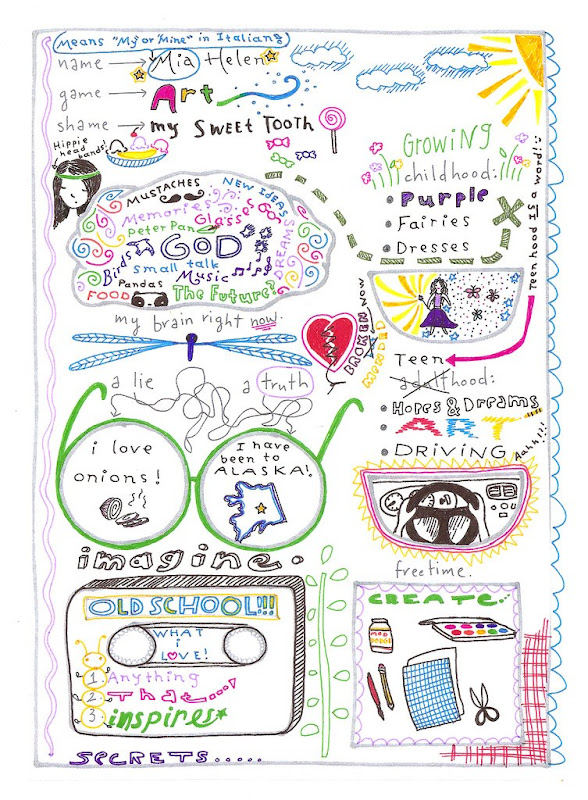 Means "My or "Mine" in Italian
name → Mia Helen
game → Art
shame → my SWEET TOOTH
Hippie
head bands!
MUSTACHES
NEW IDEAS
Memories
Glasses
Peter Pan
GOD
DREAMS
Birds
small talk
Music
Pandas
FOOD
The Future?
my brain right now.
Growing
childhood:
• Purple
• Fairies
• Dresses
Teen hood IS a word!
BROKEN NOW
MENDED
Teen
adulthood:
• Hopes & Dreams
• ART
• DRIVING
Aahh!!!
a lie
a truth
i love
onions!
I have
been to
ALASKA!
imagine.
freetime.
OLD SCHOOL!!!
WHAT
i
LOVE!
1. Anything
2. That...
3. inspires
CREATE
SECRETS.....